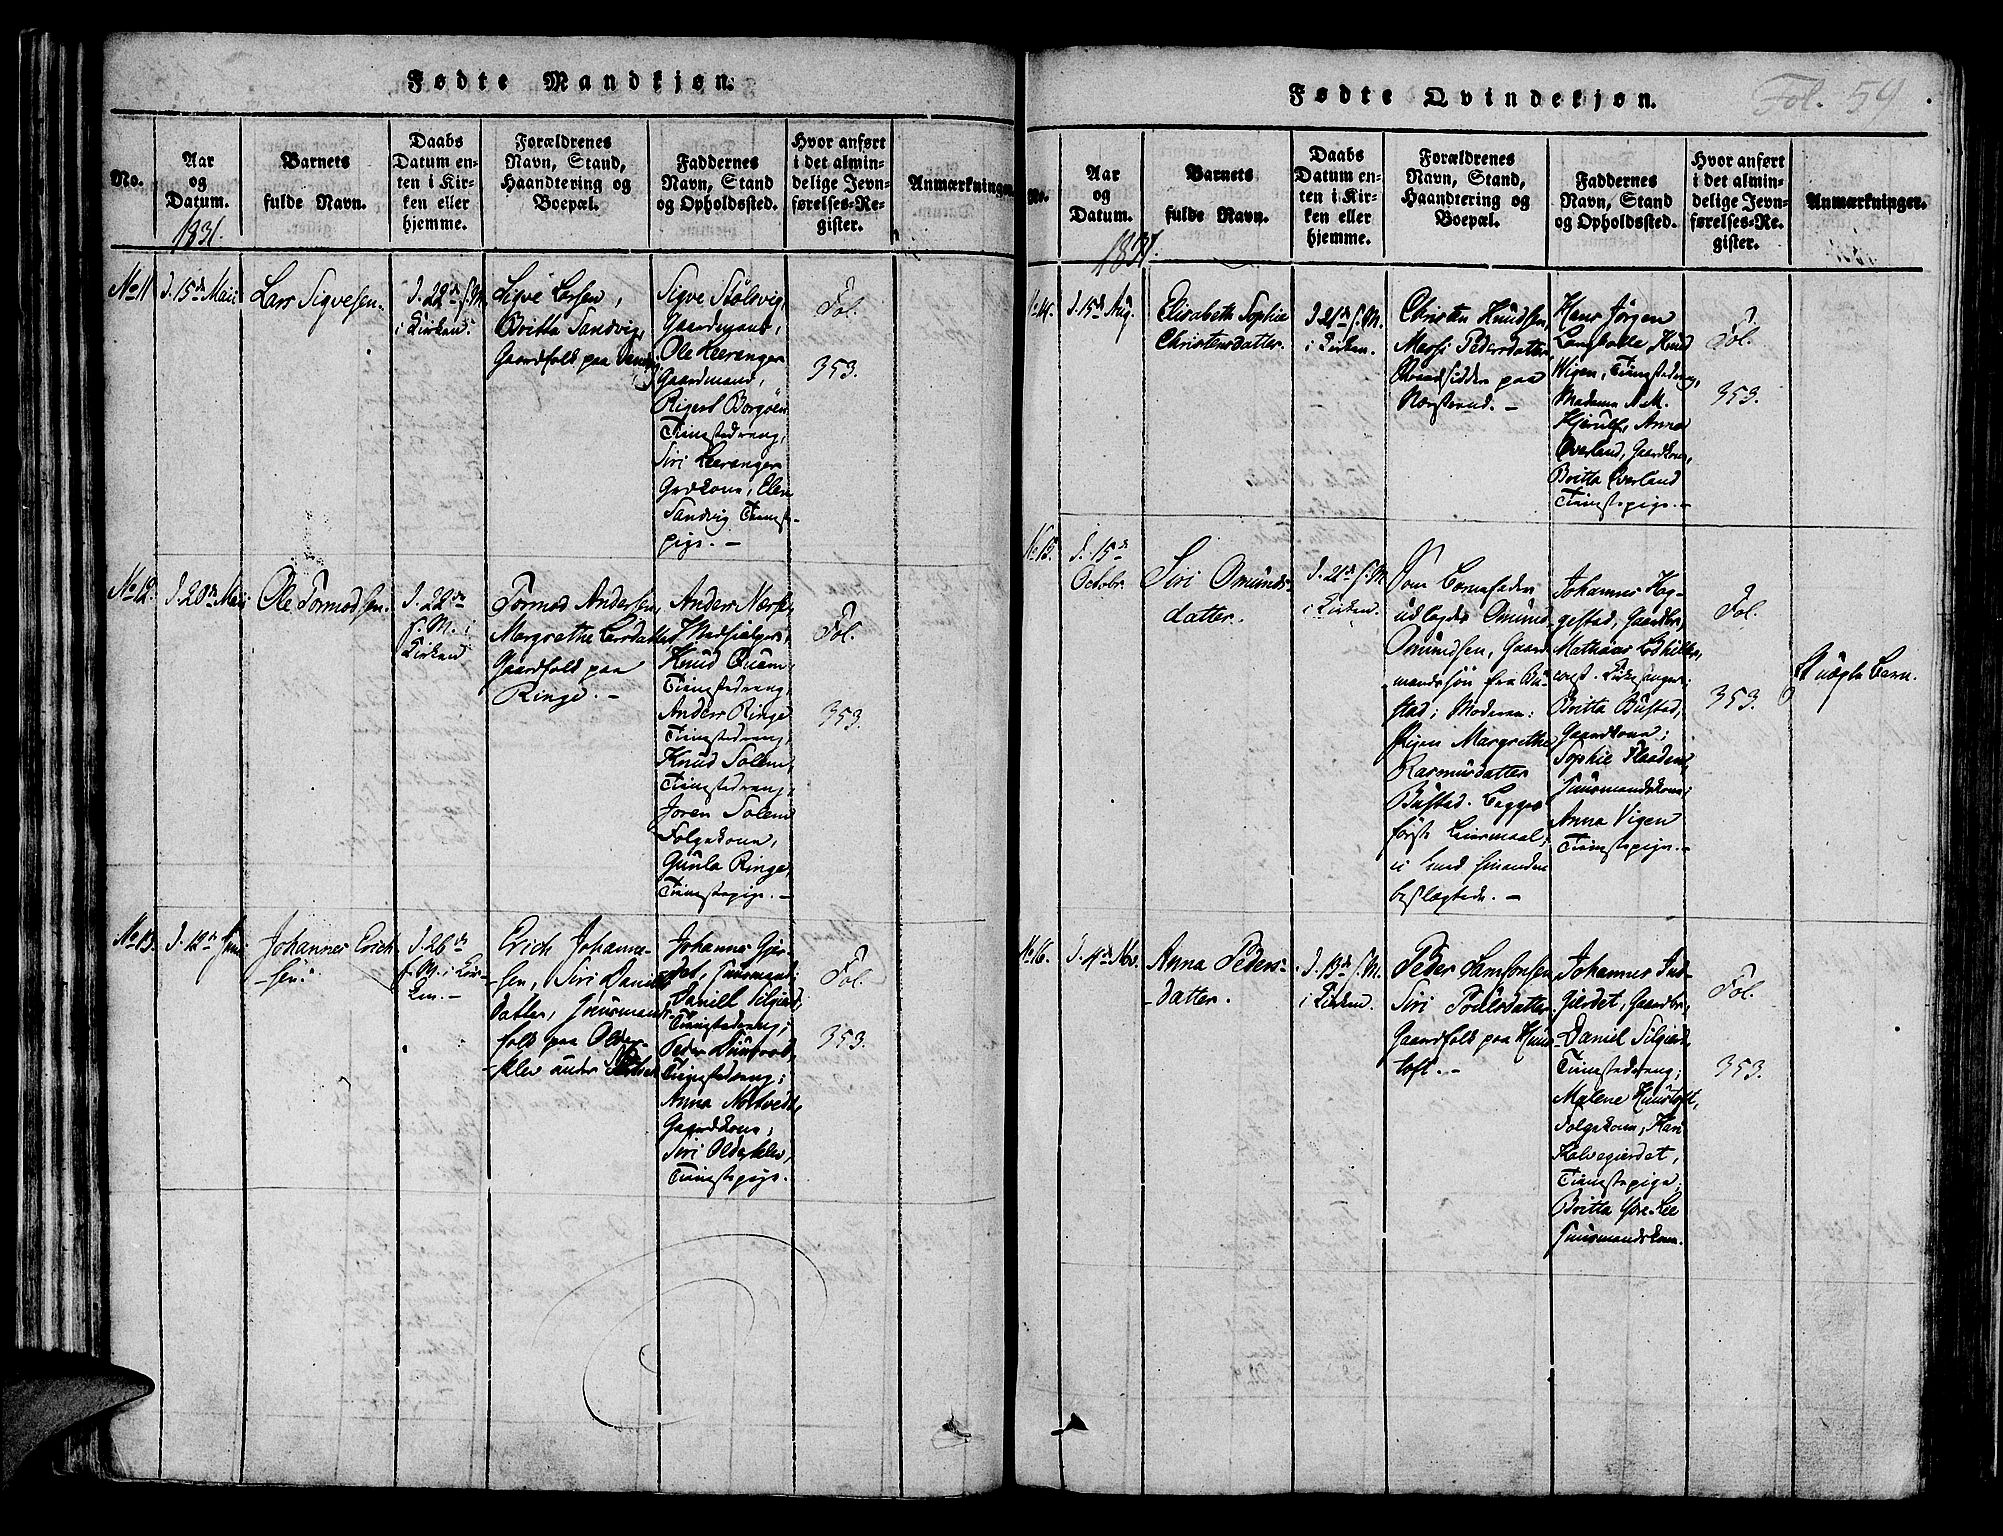 Fødte Mandkjøn.
No.
Aar
og
Datum.
1831.
Barnets
fulde Navn.
Daabs
Datum en-
ten i Kir-
ken eller
hjemme.
Forældrenes
Navn, Stand,
Haandtering og
Boepæl.
Faddernes
Navn, Stand
og Opholdssted.
Hvor anført
i det almin-
delige Jevn-
førelses-Re-
gister.
Anmærkninger.
No 11
d. 15de Maii
Lars Sigvesen.
d. 22de s. M.
i Kirken.
Sigve Larsen,
Britta Sandvig,
Gaardfolk paa
Sigve Stølsvig,
Gaardmand,
Ole Leeranger
Gaardmand,
Rigert Borgøen
Tienestedreng,
Siri Leeranger
Grdkone, Elen
Sandvig Tienste-
pige. -
Fol.
353.
No 12.
d. 20de Maii
Ole Tormodsen.
d. 22de
s. M. i
Kirken
Tormod Andersen,
Margrethe Larsdatter,
Gaardfolk paa
Ringe. -
Anders
Knud Quam,
Tienestedreng,
Anders Ringe
Tienestedreng,
Knud Solem,
Tienestedreng,
Joren Solem
Folgekone,
Gunla Ringe,
Tienestepige. -
Fol.
353.
No 13.
d. 12te Juni
Johannes Erich-
sen.
d. 26de
s. M. i Kir-
ken. -
Erich Johanne-
sen, Siri Daniels
datter, Huusmands-
folk paa Older-
klev under
Johannes Gjer-
det, Huusmand;
Daniel Silgierd,
Tienestedreng;
Peder
Tienestedreng;
Anna Nortvedt,
Gaardkone;
Siri Olderklev,
Tienestepige.
Fol.
353.
Fødte Qvindekjøn.
Fol. 59
No.
Aar
og
Datum.
1831.
Barnets
fulde Navn.
Daabs
Datum en-
ten i Kir-
ken eller
hjemme.
Forældrenes
Navn, Stand,
Haandtering og
Boepæl.
Faddernes
Navn, Stand
og Opholdssted.
Hvor anført
i det almin-
delige Jevn-
førelses-Re-
gister.
Anmærkninger.
No 14.
d. 15de Aug.
Elisabeth Sophie
Christensdatter.
d. 21de s. M.
i Kirken.
Christen Knudsen,
Marthe Pedersdatter
Strandsidder paa
Nærstrand. -
Hans Jørgen
Langholle, Knud
Wigen, Tienestedreng,
Madame A. M.
Hjerulf, Anna
Øverland, Gaardkone,
Britta Øverland
Tienestepige. -
Fol.
353.
No 15.
d. 15de
Octobr.
Siri Omunds-
datter.
d. 21de s. M.
i Kirken.
Som Barnefader
udlagdes Omund
Omundsen, Gaard-
mandssøn fra Bu-
stad; Moderen:
Pigen Margrethe
Rasmusdatter
Bustad. Begges
første Leiermaal,
ei hinanden
beslægtede. -
Johannes Hag-
gestad, Gaardbr.,
Mathias
const. Kirkesanger;
Britta Bustad,
Gaardkone;
Sophie
Huusmandskone;
Anna Vigen
Tienestepige. -
Fol.
353.
Uægte Barn.
No 16.
d. 4de Nov.
Anna Peders-
datter.
d. 13de s. M.
i Kirken.
Peder Samsonsen
Siri Poulsdatter
Gaardfolk paa Huus-
toft. -
Johannes Ind-
gierdet, Gaardbr.,
Daniel Silgierd,
Tienestedreng;
Malene Huustoft,
Folgekone, Kari
Kalvegierdet,
Tienestepige;
Britta Øvre Lie
Huusmandskone.
Fol.
353.